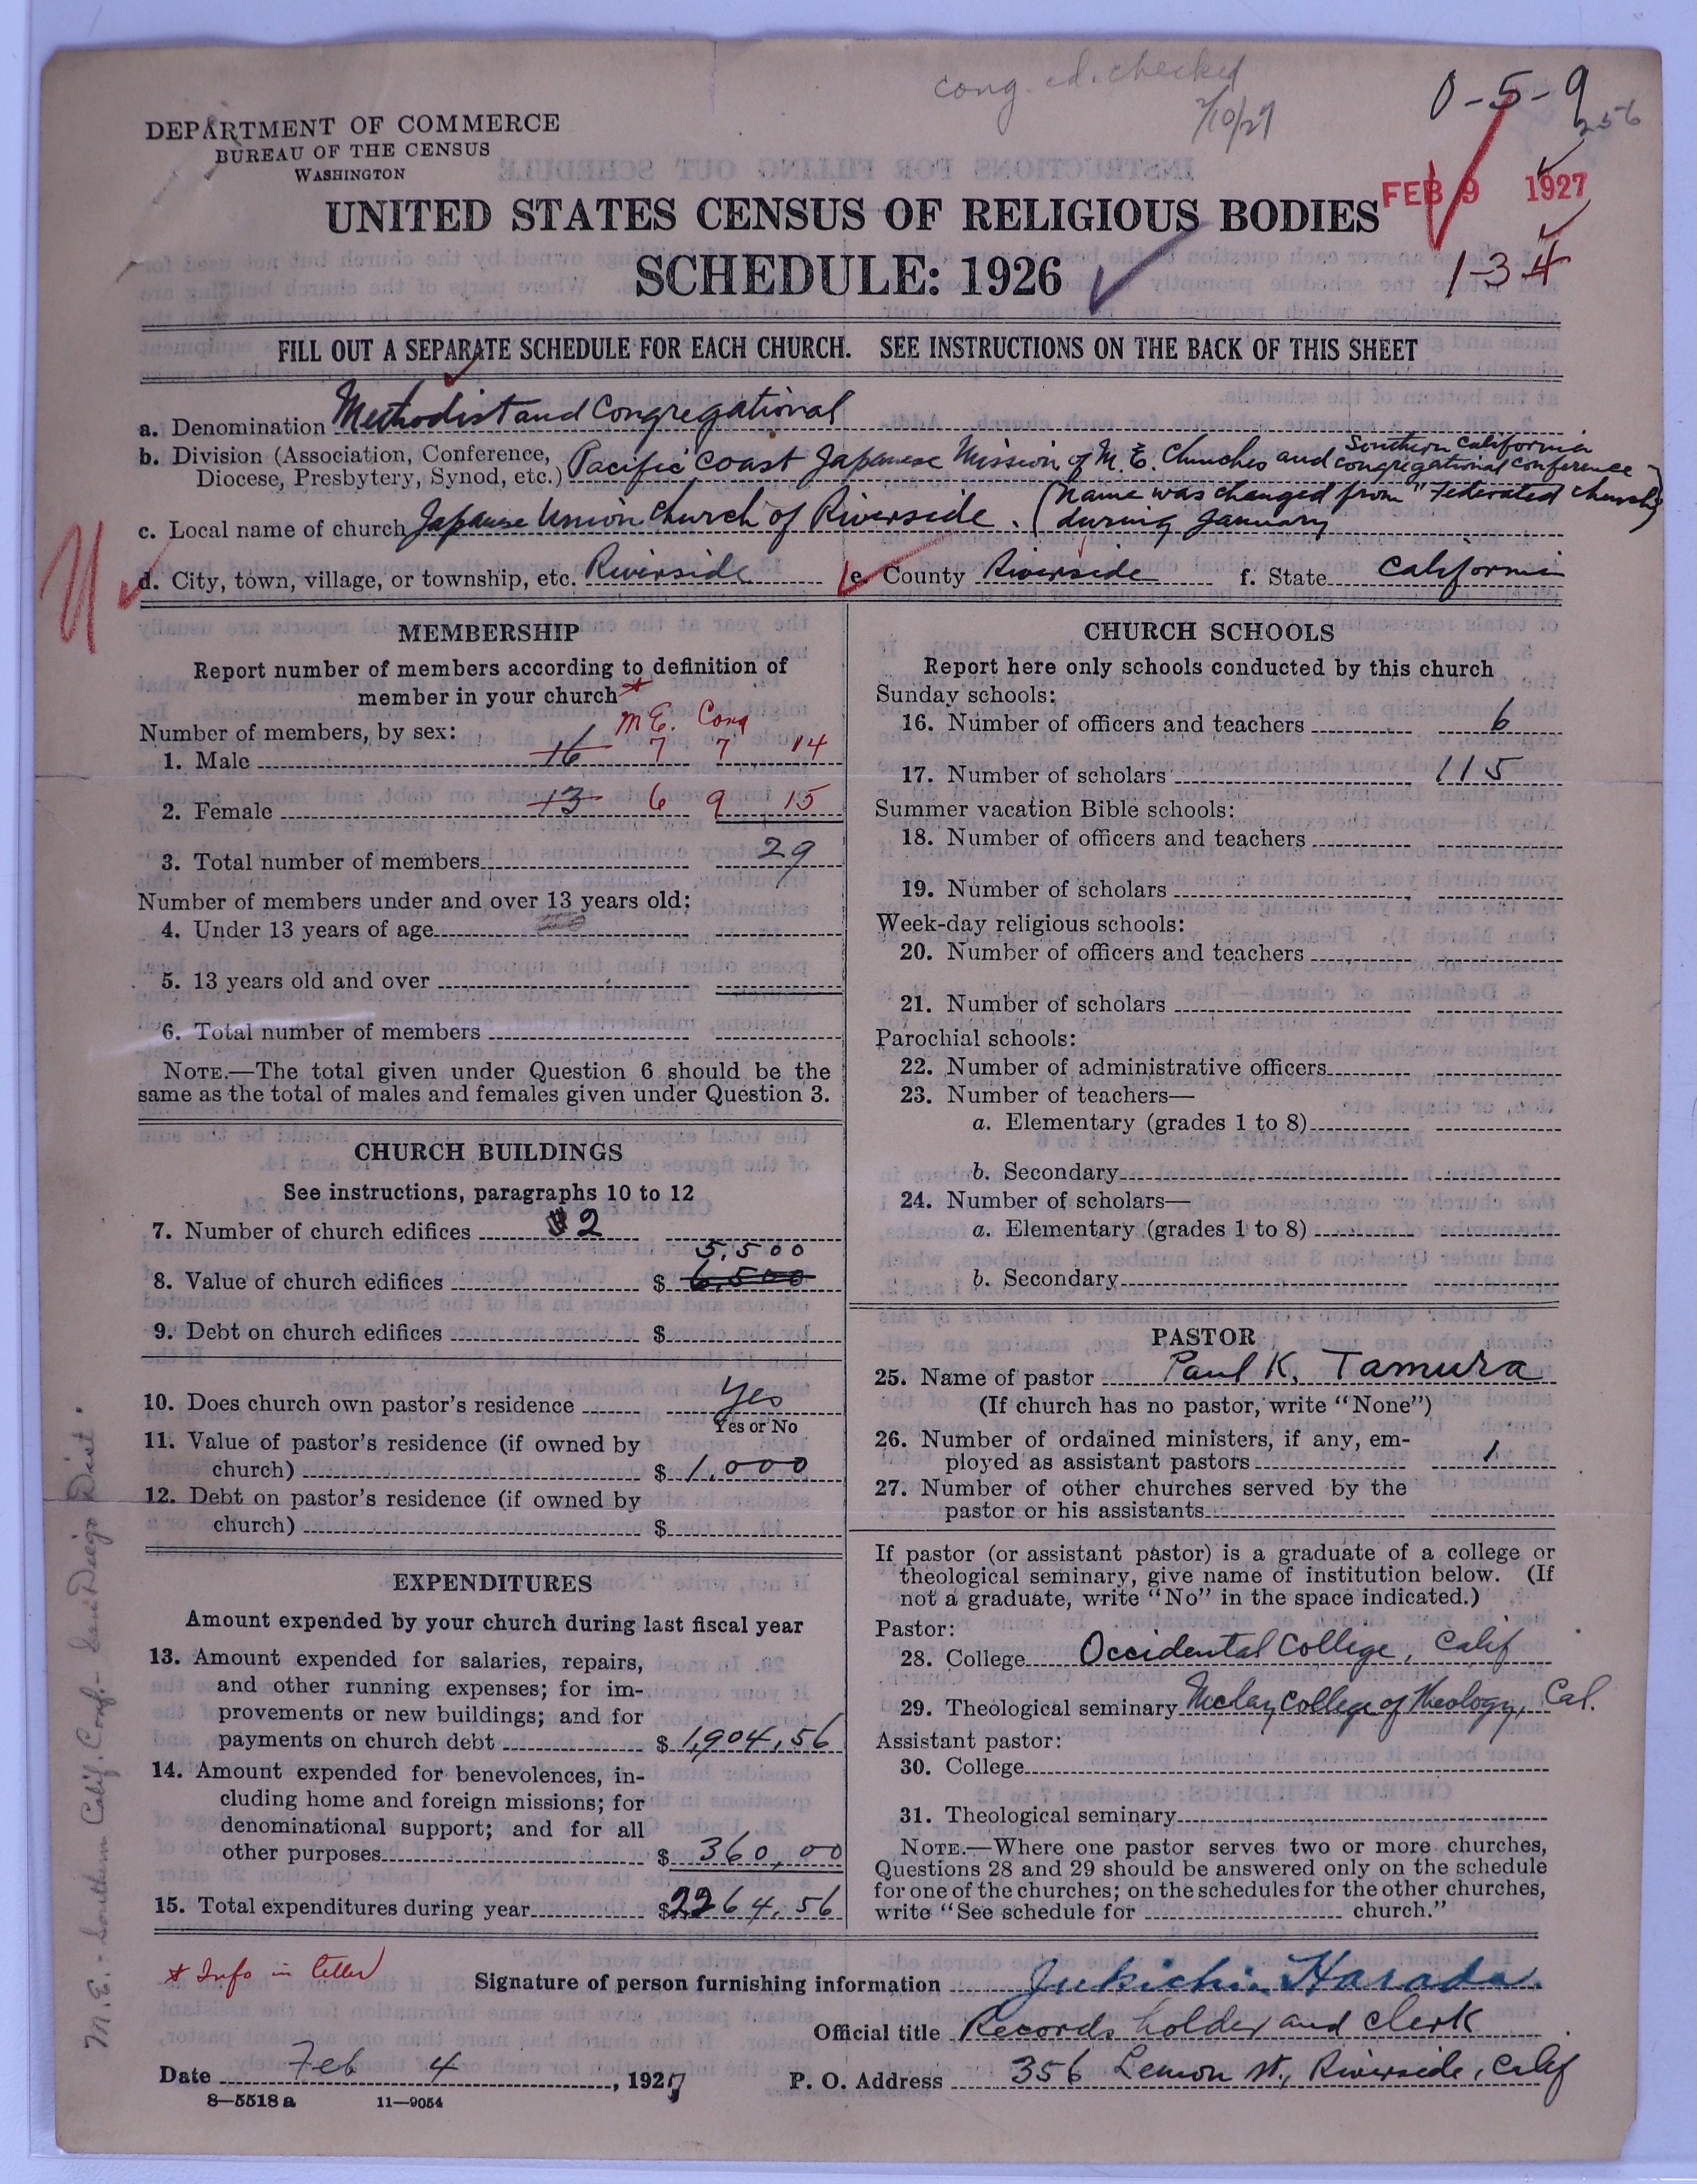 cong. ed. checked
2/10/27
0-5-9
256
DEPARTMENT OF COMMERCE
BUREAU OF THE CENSUS
WASHINGTON
FEB 9 1927
UNITED STATES CENSUS OF RELIGIOUS BODIES
SCHEDULE: 1926
1-34
FILL OUT A SEPARATE SCHEDULE FOR EACH CHURCH. SEE INSTRUCTIONS ON THE BACK OF THIS SHEET
a. Denomination Methodist and Congregational
b. Division (Association, Conference, Diocese, Presbytery, Synod, etc.) Pacific Coast Japanese Mission of M. E. Churches and Southern California Congregational Conference
c. Local name of church Japanese Union Church of Riverside. (Name was changed from "Federated church" during January)
d. City, town, village, or township, etc. Riverside e. County Riverside f. State California
MEMBERSHIP
Report number of members according to definition of
member in your church *
Number of members, by sex: M E. Cong
1. Male 16 7 7 14
2. Female 13 6 9 15
3. Total number of members 29
Number of members under and over 13 years old:
4. Under 13 years of age
5. 13 years old and over
6. Total number of members
NOTE.—The total given under Question 6 should be the
same as the total of males and females given under Question 3.
CHURCH BUILDINGS
See instructions, paragraphs 10 to 12
7. Number of church edifices 2
5,500
8. Value of church edifices $ 6,500
9. Debt on church edifices $
10. Does church own pastor's residence Yes
Yes or No
11. Value of pastor's residence (if owned by
church) $ 1,000
12. Debt on pastor's residence (if owned by
church) $
EXPENDITURES
Amount expended by your church during last fiscal year
13. Amount expended for salaries, repairs,
and other running expenses; for im-
provements or new buildings; and for
payments on church debt $ 1,904.56
14. Amount expended for benevolences, in-
cluding home and foreign missions; for
denominational support; and for all
other purposes $ 360.00
15. Total expenditures during year $2264.56
CHURCH SCHOOLS
Report here only schools conducted by this church
Sunday schools:
16. Number of officers and teachers 6
17. Number of scholars 115
Summer vacation Bible schools:
18. Number of officers and teachers
19. Number of scholars
Week-day religious schools:
20. Number of officers and teachers
21. Number of scholars
Parochial schools:
22. Number of administrative officers
23. Number of teachers—
a. Elementary (grades 1 to 8)
b. Secondary
24. Number of scholars—
a. Elementary (grades 1 to 8)
b. Secondary
PASTOR
25. Name of pastor Paul K. Tamura
(If church has no pastor, write "None")
26. Number of ordained ministers, if any, em-
ployed as assistant pastors 1
27. Number of other churches served by the
pastor or his assistants
If pastor (or assistant pastor) is a graduate of a college or
theological seminary, give name of institution below. (If
not a graduate, write "No" in the space indicated.)
Pastor:
28. College Occidental College, Calif
29. Theological seminary Mclay College of Theology, Cal.
Assistant pastor:
30. College
31. Theological seminary
NOTE.—Where one pastor serves two or more churches,
Questions 28 and 29 should be answered only on the schedule
for one of the churches; on the schedules for the other churches,
write "See schedule for church."
* Info in letter
Signature of person furnishing information Jukichi Harada
Official title Records holder and clerk
Date Feb 4, 1927
P. O. Address 356 Lemon St., Riverside, Calif
8—5518 a 11—9054
M. E. - Southern Calif. Conf. - San Diego Dist.